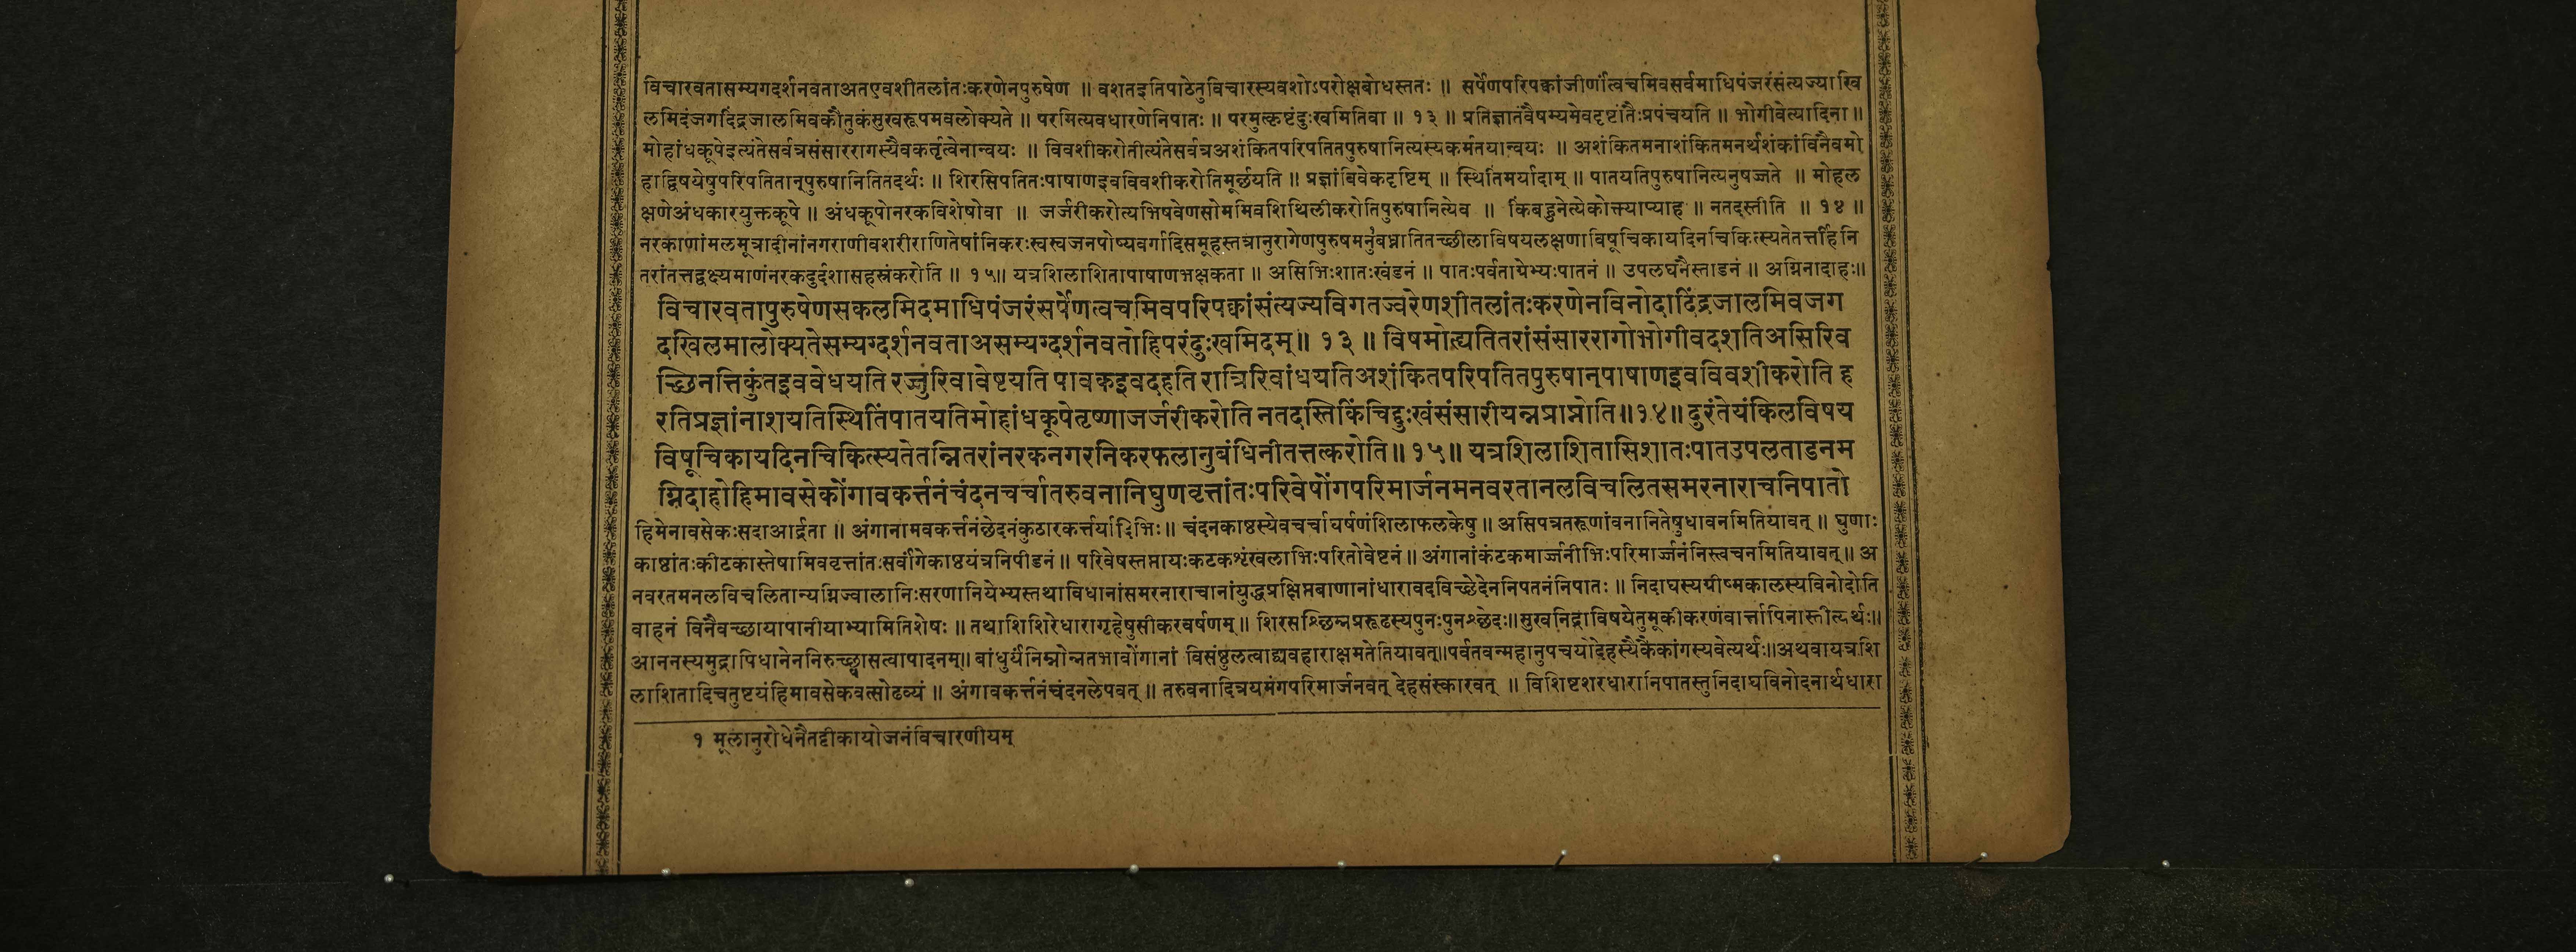 विचारवतासम्यगदर्शनवताअतएवशीतलांतःकरणेनपुरुषेण ॥ वशतइतिपाठेतुविचारस्यवशोऽपरोक्षबोधस्ततः ॥ सर्पेणपरिपक्वांजीर्णांत्वचमिवसर्वमाधिपंजरंसंत्यज्याखि
लमिदंजगदिंद्रजालमिवकौतुकंसुखरूपमवलोक्यते ॥ परमित्यवधारणेनिपातः ॥ परमुत्कृष्टंदुःखमितिवा ॥ १३ ॥ प्रतिज्ञातंवैषम्यमेवदृष्टांतैःप्रपंचयति ॥ भोगीवेत्यादिना ॥
मोहांधकूपेइत्यंतेसर्वत्रसंसाररागस्यैवकर्तृत्वेनान्वयः ॥ विवशीकरोतीत्यंतेसर्वत्रअशंकितपरिपतितपुरुषानित्यस्यकर्मतयान्वयः ॥ अशंकितमनाशंकितमनर्थशंकांविनैवमो
हाद्विषयेषुपरिपतितान्पुरुषानितितदर्थः ॥ शिरसिपतितःपाषाणइवविवशीकरोतिमूर्छयति ॥ प्रज्ञांविवेकदृष्टिम् ॥ स्थितिमर्यादाम् ॥ पातयतिपुरुषानित्यनुषज्जते ॥ मोहल
क्षणेअंधकारयुक्तकूपे ॥ अंधकूपोनरकविशेषोवा ॥ जर्जरीकरोत्यभिषवेणसोममिवशिथिलीकरोतिपुरुषानित्येव ॥ किंबहुनेत्येकोक्त्याप्याह ॥ नतदस्तीति ॥ १४ ॥
नरकाणांमलमूत्रादीनांनगराणीवशरीराणितेषांनिकरःस्वस्वजनपोष्यवर्गादिसमूहस्तत्रानुरागेणपुरुषमनुबध्नातितच्छीलाविषयलक्षणाविषूचिकायदिनचिकित्स्यतेतत्तर्हिनि
तरांतत्तद्वक्ष्यमाणंनरकदुर्दशासहस्रंकरोति ॥ १५॥ यत्रशिलाशितापाषाणभक्षकता ॥ असिभिःशातःखंडनं ॥ पातःपर्वताग्रेभ्यःपातनं ॥ उपलघनैस्ताडनं ॥ अग्निनादाहः॥
विचारवतापुरुषेणसकलमिदमाधिपंजरंसर्पेणत्वचमिवपरिपक्वांसंत्यज्यविगतज्वरेणशीतलांतःकरणेनविनोदादिंद्रजालमिवजग
दखिलमालोक्यतेसम्यग्दर्शनवताअसम्यग्दर्शनवतोहिपरंदुःखमिदम्॥ १३ ॥ विषमोह्यतितरांसंसाररागोभोगीवदशतिअसिरिव
च्छिनत्तिकुंतइववेधयति रज्जुरिवावेष्टयति पावकइवदहति रात्रिरिवांधयतिअशंकितपरिपतितपुरुषान्पाषाणइवविवशीकरोति ह
रतिप्रज्ञांनाशयतिस्थितिंपातयतिमोहांधकूपेतृष्णाजर्जरीकरोति नतदस्तिकिंचिद्दुःखंसंसारीयन्नप्राप्नोति॥१४॥ दुरंतेयंकिलविषय
विषूचिकायदिनचिकित्स्यतेतन्नितरांनरकनगरनिकरफलानुबंधिनीतत्तत्करोति॥ १५॥ यत्रशिलाशितासिशातःपातउपलताडनम
ग्निदाहोहिमावसेकोंगावकर्त्तनंचंदनचर्चातरुवनानिघुणवृत्तांतःपरिवेषोंगपरिमार्जनमनवरतानलविचलितसमरनाराचनिपातो
हिमेनावसेकःसदाआर्द्रता ॥ अंगानामवकर्त्तनंछेदनंकुठारकर्त्तर्यादिभिः॥ चंदनकाष्ठस्येवचर्चाघर्षणंशिलाफलकेषु ॥ असिपत्रतरूणांवनानितेषुधावनमितियावत् ॥ घुणाः
काष्ठांतःकीटकास्तेषामिववृत्तांतःसर्वांगेकाष्ठयंत्रनिपीडनं ॥ परिवेषस्तप्तायःकटकशृंखलाभिःपरितोवेष्टनं ॥ अंगानांकंटकमार्ज्जनीभिःपरिमार्ज्जनंनिस्त्वचनमितियावत्॥ अ
नवरतमनलविचलितान्यग्निज्वालानिःसरणानियेभ्यस्तथाविधानांसमरनाराचानांयुद्धप्रक्षिप्तबाणानांधारावदविच्छेदेननिपतनंनिपातः ॥ निदाघस्यग्रीष्मकालस्यविनोदोति
वाहनं विनैवच्छायापानीयाभ्यामितिशेषः ॥ तथाशिशिरेधारागृहेषुसीकरवर्षणम् ॥ शिरसश्छिन्नप्ररूढस्यपुनःपुनश्छेदः॥सुखनिद्राविषयेतुमूकीकरणंवार्त्तापिनास्तीत्यर्थः॥
आननस्यमुद्रापिधानेननिरुच्छ्वासत्वापादनम्॥ बांधुर्यंनिम्नोन्नतभावोंगानां विसंष्ठुलत्वाद्व्यवहाराक्षमतेतियावत्॥पर्वतवन्महानुपचयोदेहस्यैकैकांगस्यवेत्यर्थः॥अथवायत्रशि
लाशितादिचतुष्टयंहिमावसेकवत्सोढव्यं ॥ अंगावकर्त्तनंचंदनलेपवत् ॥ तरुवनादित्रयमंगपरिमार्जनवत् देहसंस्कारवत् ॥ विशिष्टशरधारानिपातस्तुनिदाघविनोदनार्थधारा
१ मूलानुरोधेनैतट्टीकायोजनंविचारणीयम्